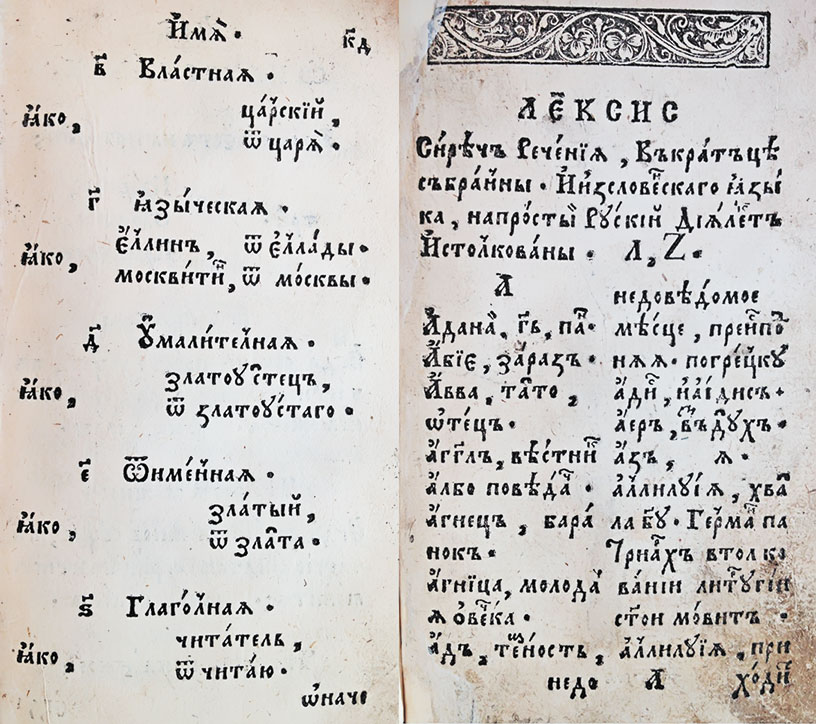 И҆мѧ̀.
к҃д
в҃ Вла́стнаѧ.
ꙗ҆́ко, ца́рскїй,
ѿ царѧ̀.
г҃ ꙗ҆зы́ческаѧ.
ꙗ҆́ко, Е҆́ллинъ, ѿ Е҆лла́ды.
москви́тинъ, ѿ мо́сквы.
д҃ Оу҆мали́телнаѧ.
ꙗ҆́ко, златоу́стецъ,
ѿ златоу́стаго.
є҃ Ѿиме́ннаѧ.
ꙗ҆́ко, зла́тый,
ѿ зла́та.
ѕ҃ Глаго́лнаѧ.
ꙗ҆́ко, чита́тель,
ѿ чита́ю.
ѡ҆наче
ЛЕ́КСИС
Си́рѣчъ Рече́нїѧ, Въкра́тъцѣ
събра́нны. И҆изслове́нскаго ꙗ҆зы́
ка, напросты́й Рускі́й Дїѧле́ктъ
И҆столкова́ны. Л, Z.
А
А҆дана̀, гь, па.
А҆́бїє, за́разъ.
А҆́вва, та́то,
ѡ҆те́цъ.
а҆́гг҃лъ, вѣ́стникъ
а҆́лбо повѣ́дач.
а҆́гнецъ, бара́
нокъ.
а҆́гница, молода́
ѧ ове́чка.
а҆́дъ, те́мность,
недо
недовѣ́домое
мѣ́сце, преиспо́
нѧѧ. погре́цку
а҆́дис, и҆аи́дисъ.
а҆́еръ, въ́здухъ.
а҆́зъ, ѧ.
а҆ллилу́їѧ, хва́
ла бу. Герма́ па
трїа́рхъ втолко
ва́нїи литургїи
стои мо́витъ.
а҆ллилу́їѧ, при
А хо́дит